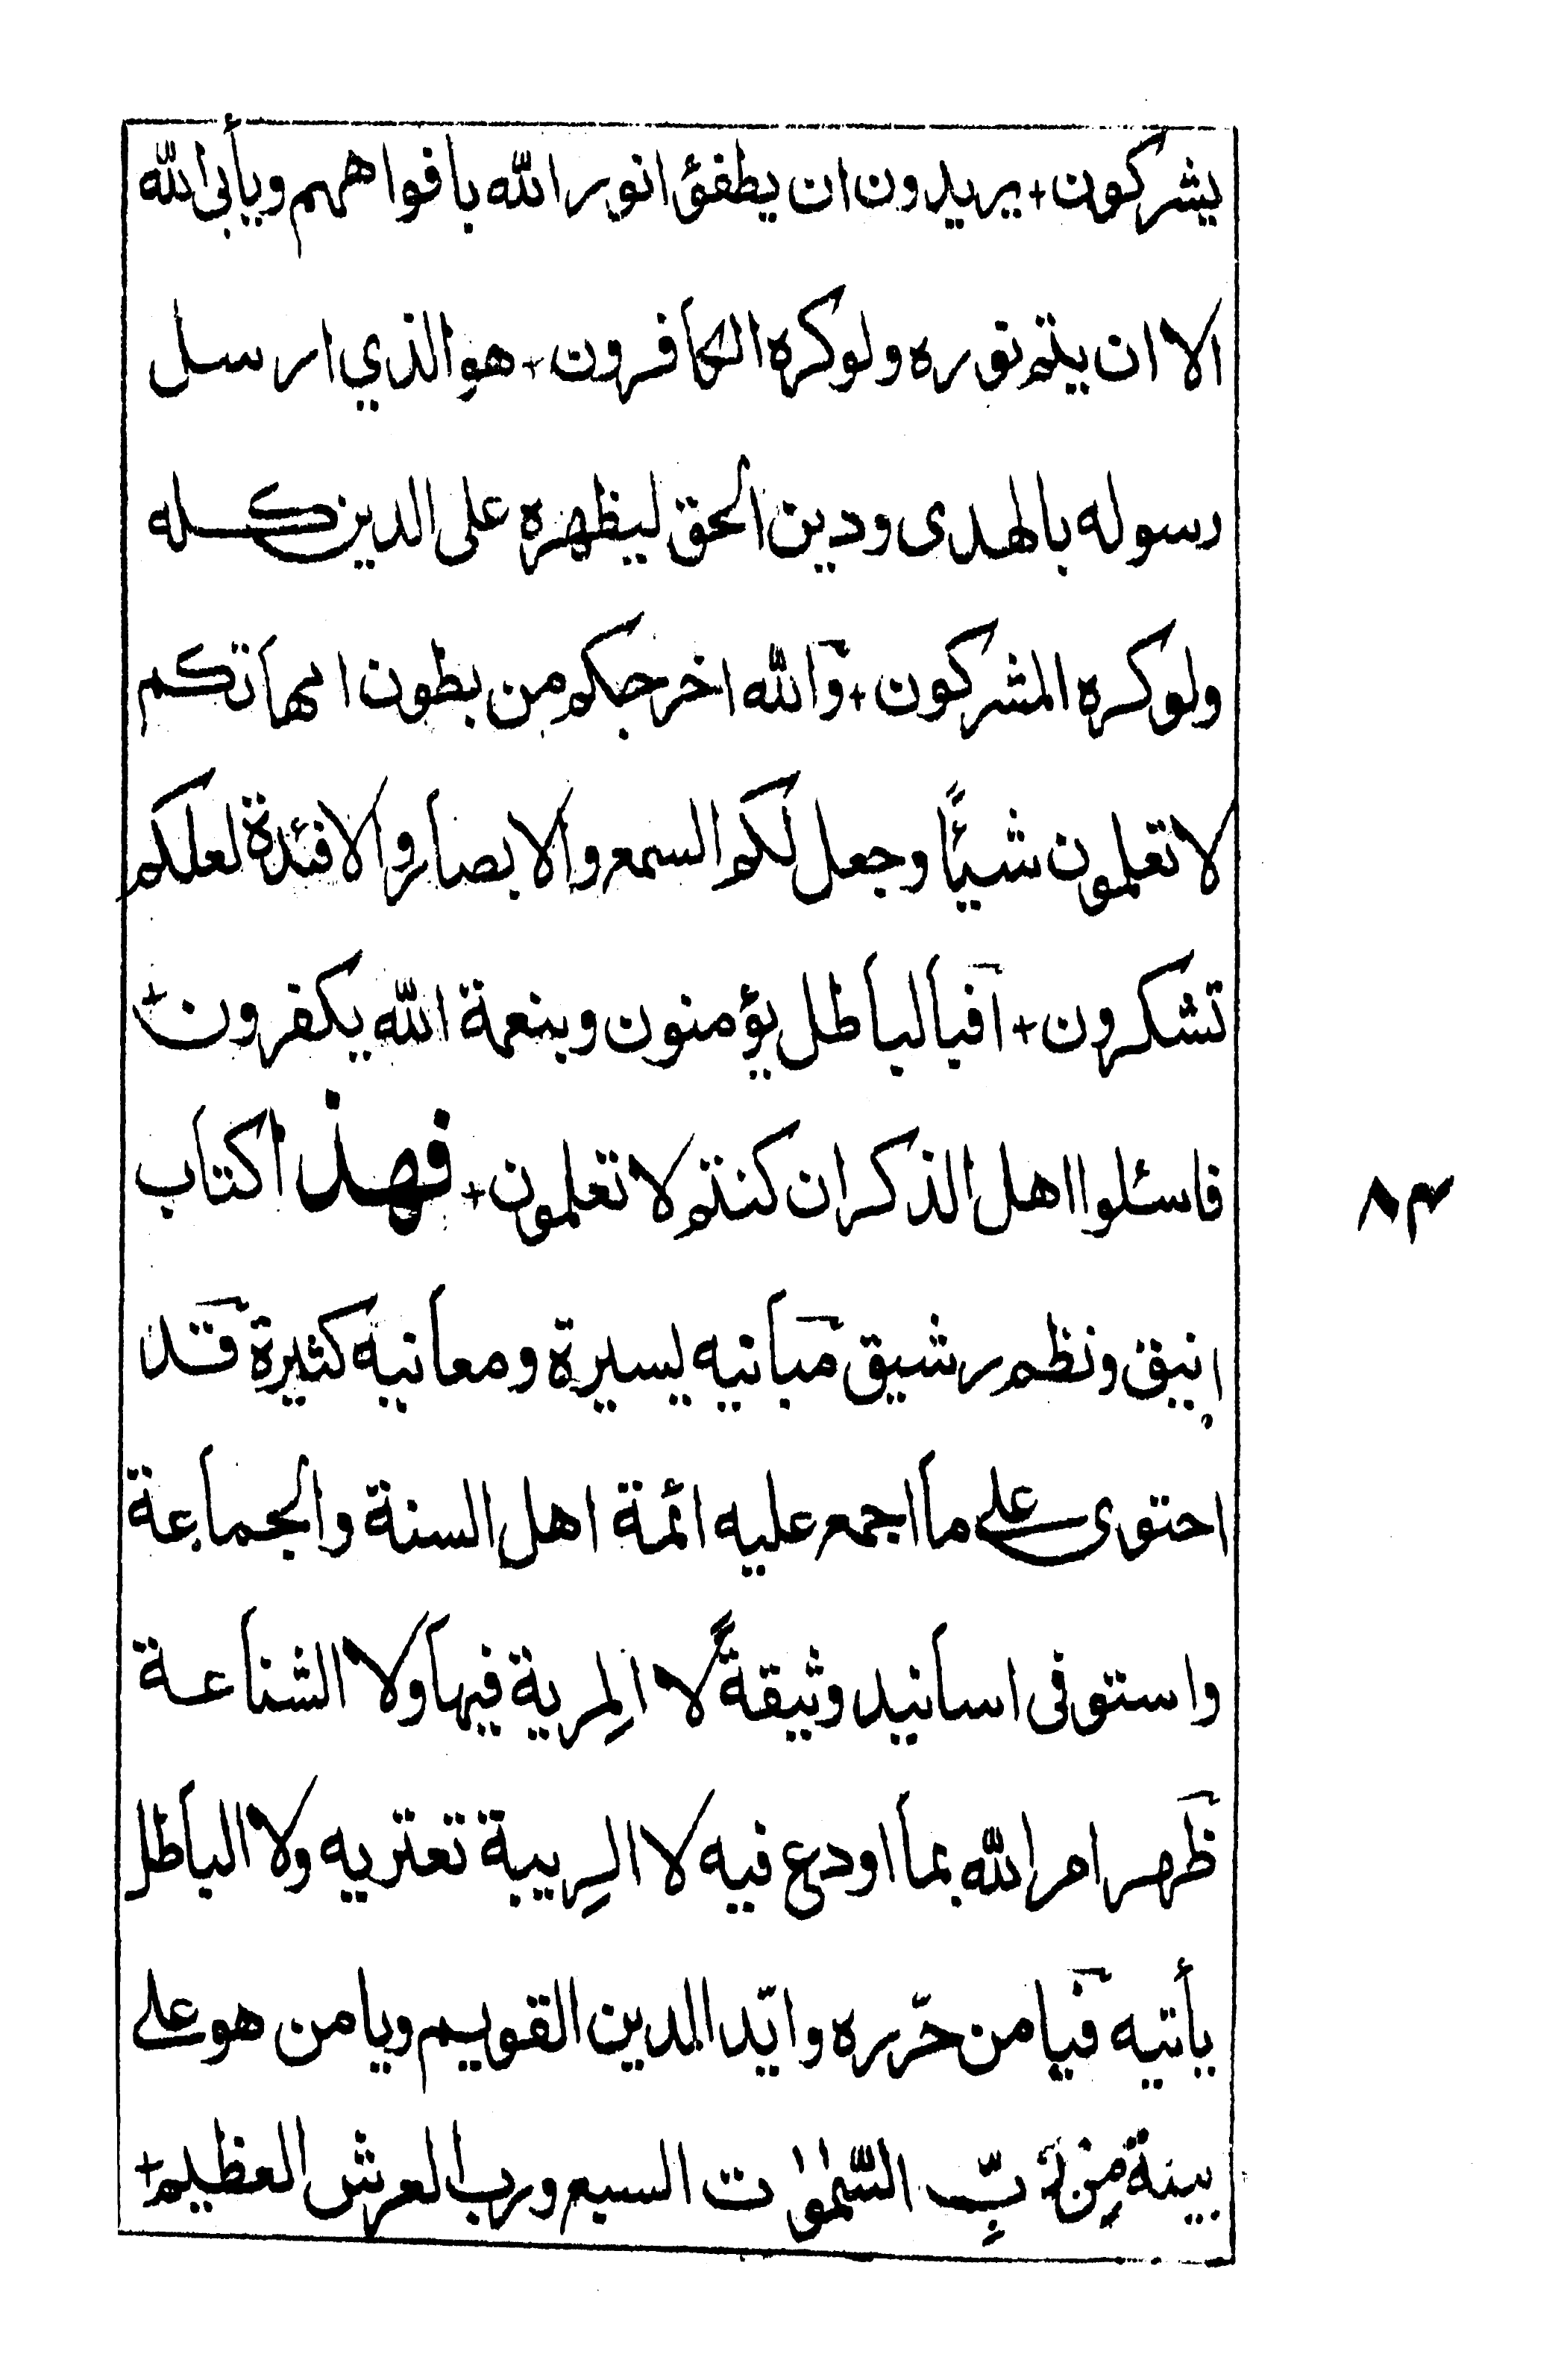 يشركون + يريدون ان يطفؤا نور الله بافواههم ويأبى الله
الا ان يتم نوره ولو كره الكافرون + هو الذي ارسل
رسوله بالهدى ودين الحق ليظهره على الدين كله
ولو كره المشركون + والله اخرجكم من بطون امهاتكم
لا تعلمون شيئًا وجعل لكم السمع والابصار والافئدة لعلكم
تشكرون + افبالباطل يؤمنون وبنعمة الله يكفرون +
فاسئلوا اهل الذكر ان كنتم لا تعلمون + فهذا كتاب
انيق ونظم رشيق مبانيه يسيرة ومعانيه كثيرة قد
احتوى على ما اجمع عليه ائمة اهل السنة والجماعة
واستوفى اسانيد وثيقةً لا المِرية فيها ولا الشناعة
ظهر امر الله بما اودع فيه لا الرِيبة تعتريه ولا الباطل
يأتيه فيا من حرّره وايّد الدين القويم ويا من هو على
بينة مِن رَبِّ السّمٰوٰت السبع ورب العرش العظيم +
٨٣